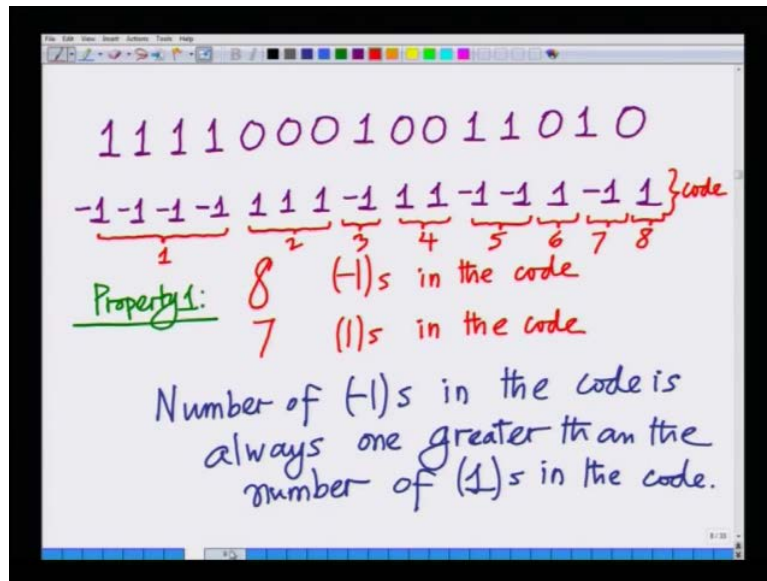 File Edit View Insert Actions Tools Help
1 1 1 1 0 0 0 1 0 0 1 1 0 1 0
-1 -1 -1 -1 1 1 1 -1 1 1 -1 -1 1 -1 1 } code
1 2 3 4 5 6 7 8
Property 1: 8 (-1)s in the code
7 (1)s in the code
Number of (-1)s in the code is
always one greater than the
number of (1)s in the code.